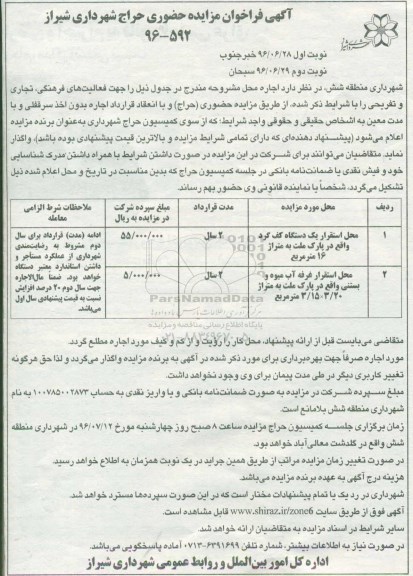 آگهی فراخوان مزایده حضوری حراج شهرداری شیراز
۹۶-۵۹۲
نوبت اول ۹۶/۰۶/۲۸ خبرجنوب
نوبت دوم ۹۶/۰۶/۲۹ سبحان
شهرداری منطقه شش، در نظر دارد اجاره محل مشروحه مندرج در جدول ذیل را جهت فعالیت‌های فرهنگی، تجاری
و تفریحی را با شرایط ذکر شده، از طریق مزایده حضوری (حراج) و با انعقاد قرارداد اجاره بدون اخذ سرقفلی و با
مدت معین به اشخاص حقیقی و حقوقی واجد شرایط؛ که از سوی کمیسیون حراج شهرداری به‌عنوان برنده مزایده
اعلام می‌شود (پیشنهاد دهنده‌ای که دارای تمامی شرایط مزایده و بالاترین قیمت پیشنهادی بوده باشد)، واگذار
نماید. متقاضیان می‌توانند برای شرکت در این مزایده در صورت داشتن شرایط با همراه داشتن مدرک شناسایی
خود و فیش نقدی یا ضمانت‌نامه بانکی در جلسه کمیسیون حراج که بدین مناسبت در تاریخ و محل اعلام شده ذیل
تشکیل می‌گردد، شخصاً یا نماینده قانونی وی حضور بهم رساند.
ردیف
محل مورد مزایده
مدت قرارداد
مبلغ سپرده شرکت در مزایده به ریال
ملاحظات شرط الزامی معامله
۱
محل استقرار یک دستگاه کف گرد
واقع در پارک ملت به متراژ
۱۶ مترمربع
۲ سال
۵۵/۰۰۰/۰۰۰
۲
محل استقرار غرفه آب میوه و
بستنی واقع در پارک ملت به متراژ
۳/۱۵×۳/۲۰ مترمربع
۲ سال
۵/۰۰۰/۰۰۰
ادامه (مدت) قرارداد برای سال
دوم مشروط به رضایت‌مندی
شهرداری از عملکرد مستأجر و
داشتن استاندارد معتبر دستگاه
خواهد بود. ضمناً مال‌الاجاره
جهت سال دوم ۲۰ درصد افزایش
نسبت به قیمت پیشنهادی سال اول
می‌باشد.
ParsNamadData
پایگاه اطلاع رسانی مناقصه و مزایده
متقاضی می‌بایست قبل از ارائه پیشنهاد، محل کار را رؤیت و از کم و کیف مورد اجاره مطلع گردد.
مورد اجاره صرفاً جهت بهره‌برداری برای مورد ذکر شده در آگهی به برنده مزایده واگذار می‌گردد و لذا حق هرگونه
تغییر کاربری دیگر در طی مدت پیمان برای وی وجود نخواهد داشت.
مبلغ سپرده شرکت در مزایده به صورت ضمانت‌نامه بانکی و یا واریز نقدی به حساب ۱۰۰۷۸۵۰۰۲۸۷۳ به نام
شهرداری منطقه شش بلامانع است.
زمان برگزاری جلسه کمیسیون حراج مزایده ساعت ۸ صبح روز چهارشنبه مورخ ۹۶/۰۷/۱۲ در شهرداری منطقه
شش واقع در گلدشت معالی‌آباد خواهد بود.
در صورت تغییر زمان مزایده مراتب از طریق همین جراید در یک نوبت همزمان به اطلاع خواهد رسید.
هزینه درج آگهی به عهده برنده مزایده می‌باشد.
شهرداری در رد یک یا تمام پیشنهادات مختار است که در این صورت سپرده‌ها مسترد خواهد شد.
آگهی فوق از طریق سایت www.shiraz.ir/zone6 قابل مشاهده است.
سایر شرایط در اسناد مزایده به متقاضیان ارائه خواهد شد.
در صورت نیاز به اطلاعات بیشتر، شماره تلفن ۶۳۹۱۶۹۹-۰۷۱۳ آماده پاسخگویی می‌باشد.
اداره کل امور بین‌الملل و روابط عمومی شهرداری شیراز